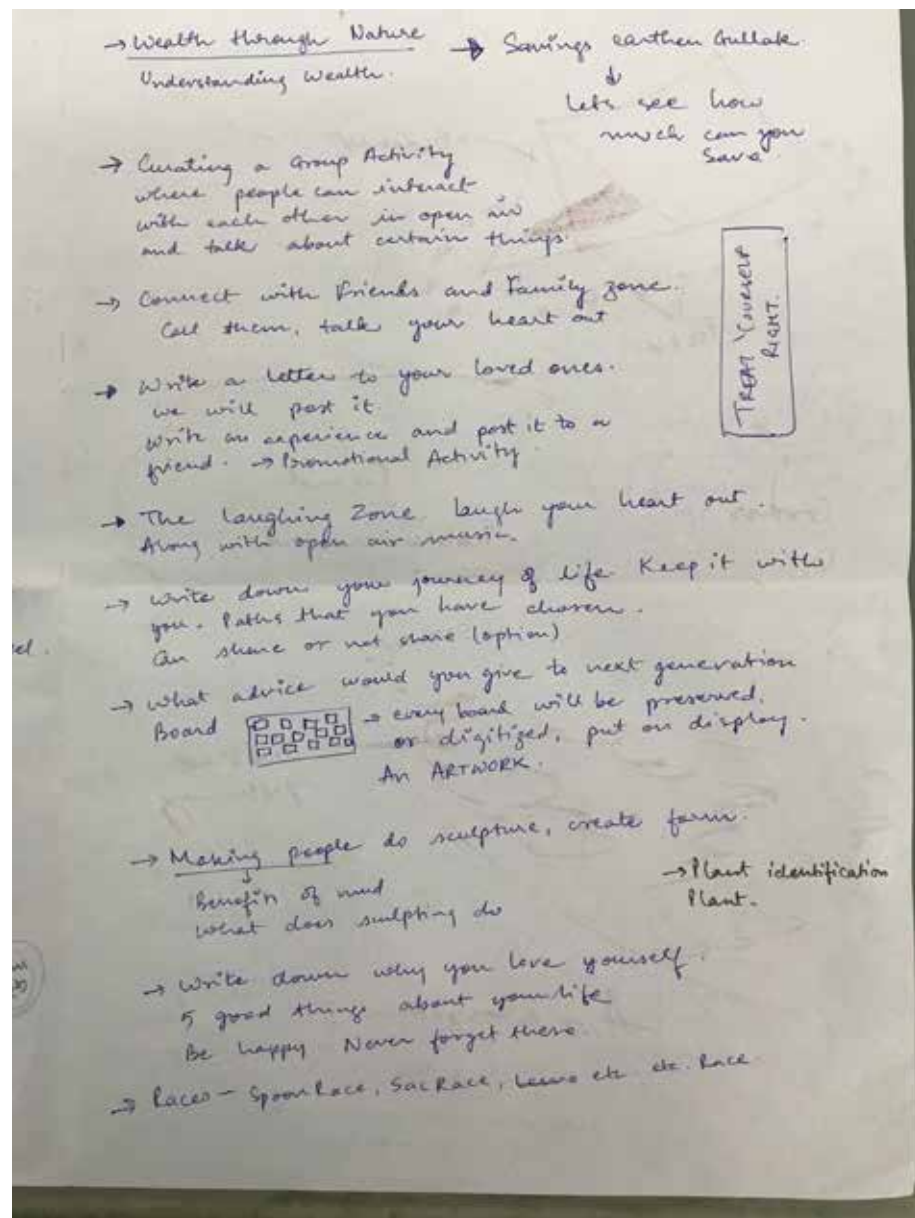 → Wealth through Nature
Understanding Wealth.
→ Savings earthen Gullak.
↓
Lets see how
much can you
save
→ Curating a Group Activity
where people can interact
with each other in open air
and talk about certain things
TREAT YOURSELF
RIGHT.
→ Connect with Friends and Family zone.
Call them, talk your heart out
→ Write a letter to your loved ones.
we will post it
write an experience and post it to a
friend. → Promotional Activity.
→ The laughing Zone laugh your heart out.
Along with open air music.
→ Write down your journey of life Keep it with
you. Paths that you have chosen.
Can share or not share (option)
→ What advice would you give to next generation
Board → every board will be preserved.
or digitized, put on display.
An ARTWORK.
→ Making people do sculpture, create form.
↓
Benefits of mud
What does sculpting do
→ Plant identification
Plant.
→ Write down why you love yourself.
5 good things about your life
Be happy Never forget these
→ Races - Spoon Race, Sac Race, etc etc. Race
el.